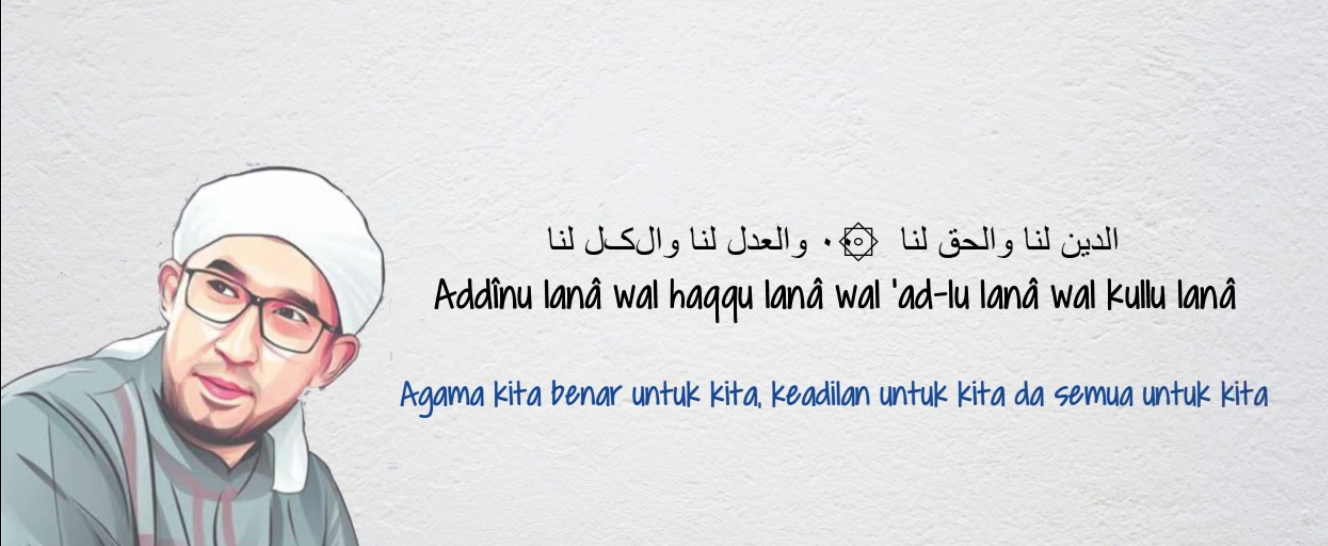 الدين لنا والحق لنا ۞ والعدل لنا والكـل لنا
Addînu lanâ wal haqqu lanâ wal 'ad-lu lanâ wal kullu lanâ
Agama kita benar untuk kita, keadilan untuk kita da semua untuk kita